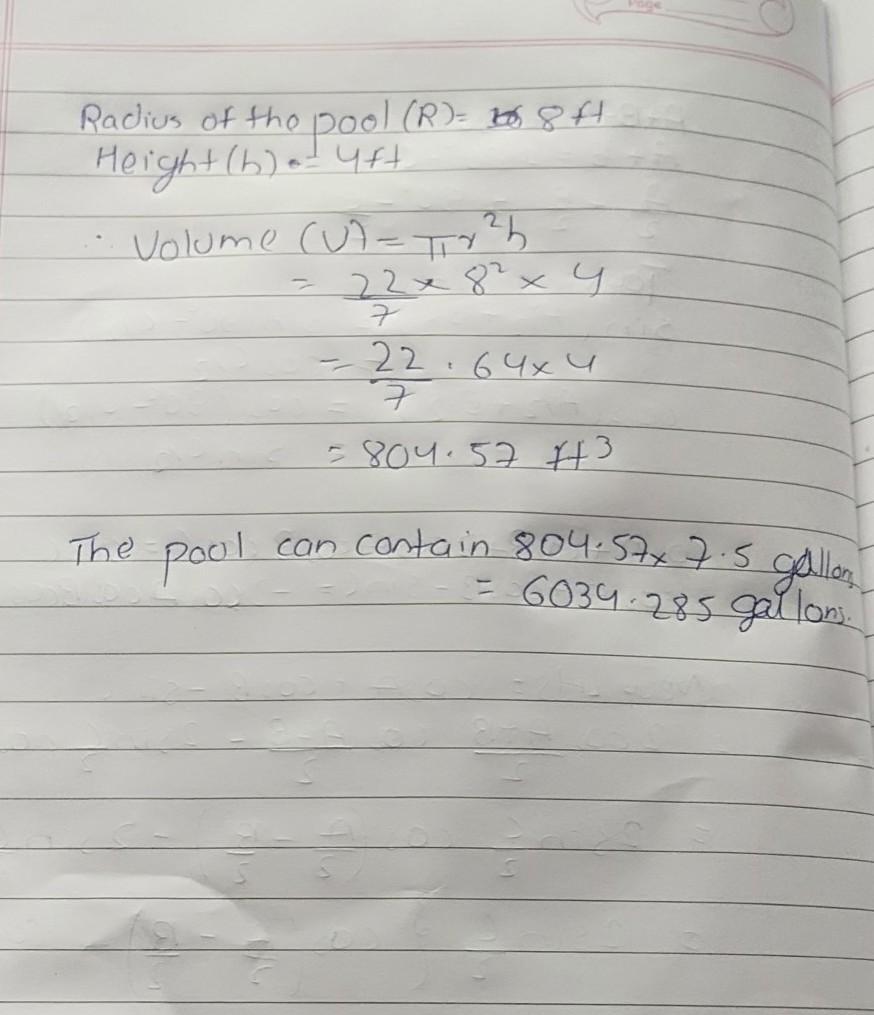 Page
Radius of the pool (R) = 8 ft
Height (h) = 4 ft
∴ Volume (V) = πr²h
= 22/7 × 8² × 4
= 22/7 · 64 × 4
= 804.57 ft3
The pool can contain 804.57 × 7.5 gallons
= 6034.285 gallons.